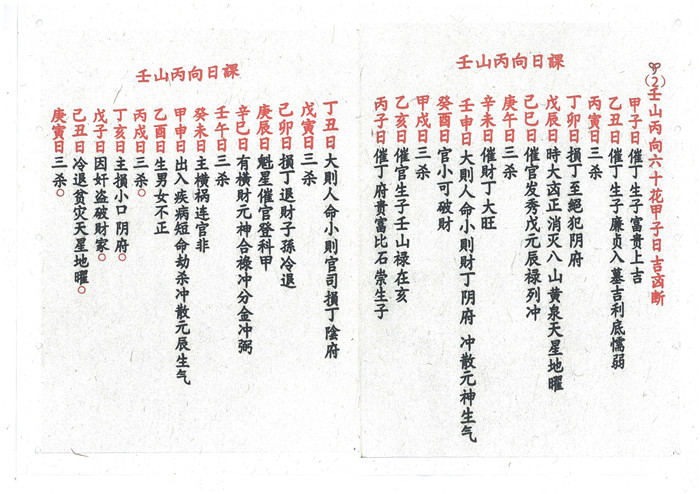 (2)壬山丙向六十花甲子日吉凶断
壬山丙向日課
甲子日催丁生子富贵上吉
乙丑日催丁生子廉贞入墓吉利底懦弱
丙寅日三杀
丁卯日損丁至絕犯阴府
戊辰日時大凶正消灭八山黄泉天星地曜
己巳日催官发秀戊元辰禄列冲
庚午日三杀
辛未日催财丁大旺
壬申日大則人命小則财丁阴府 冲散元神生气
癸酉日官小可破财
甲戌日三杀
乙亥日催官生子壬山禄在亥
丙子日催丁府貴富比石崇生子
壬山丙向日課
丁丑日大則人命小則官司損丁陰府
戊寅日三杀
己卯日損丁退财子孫冷退
庚辰日魁星催官登科甲
辛巳日有橫財元神合祿冲分金冲弼
壬午日三杀
癸未日主横祸连官非
甲申日出入疾病短命劫杀冲散元辰生气
乙酉日生男女不正
丙戌日三杀。
丁亥日主損小口阴府。
戊子日因奸盗破财家。
己丑日冷退贫灾天星地曜。
庚寅日三杀。